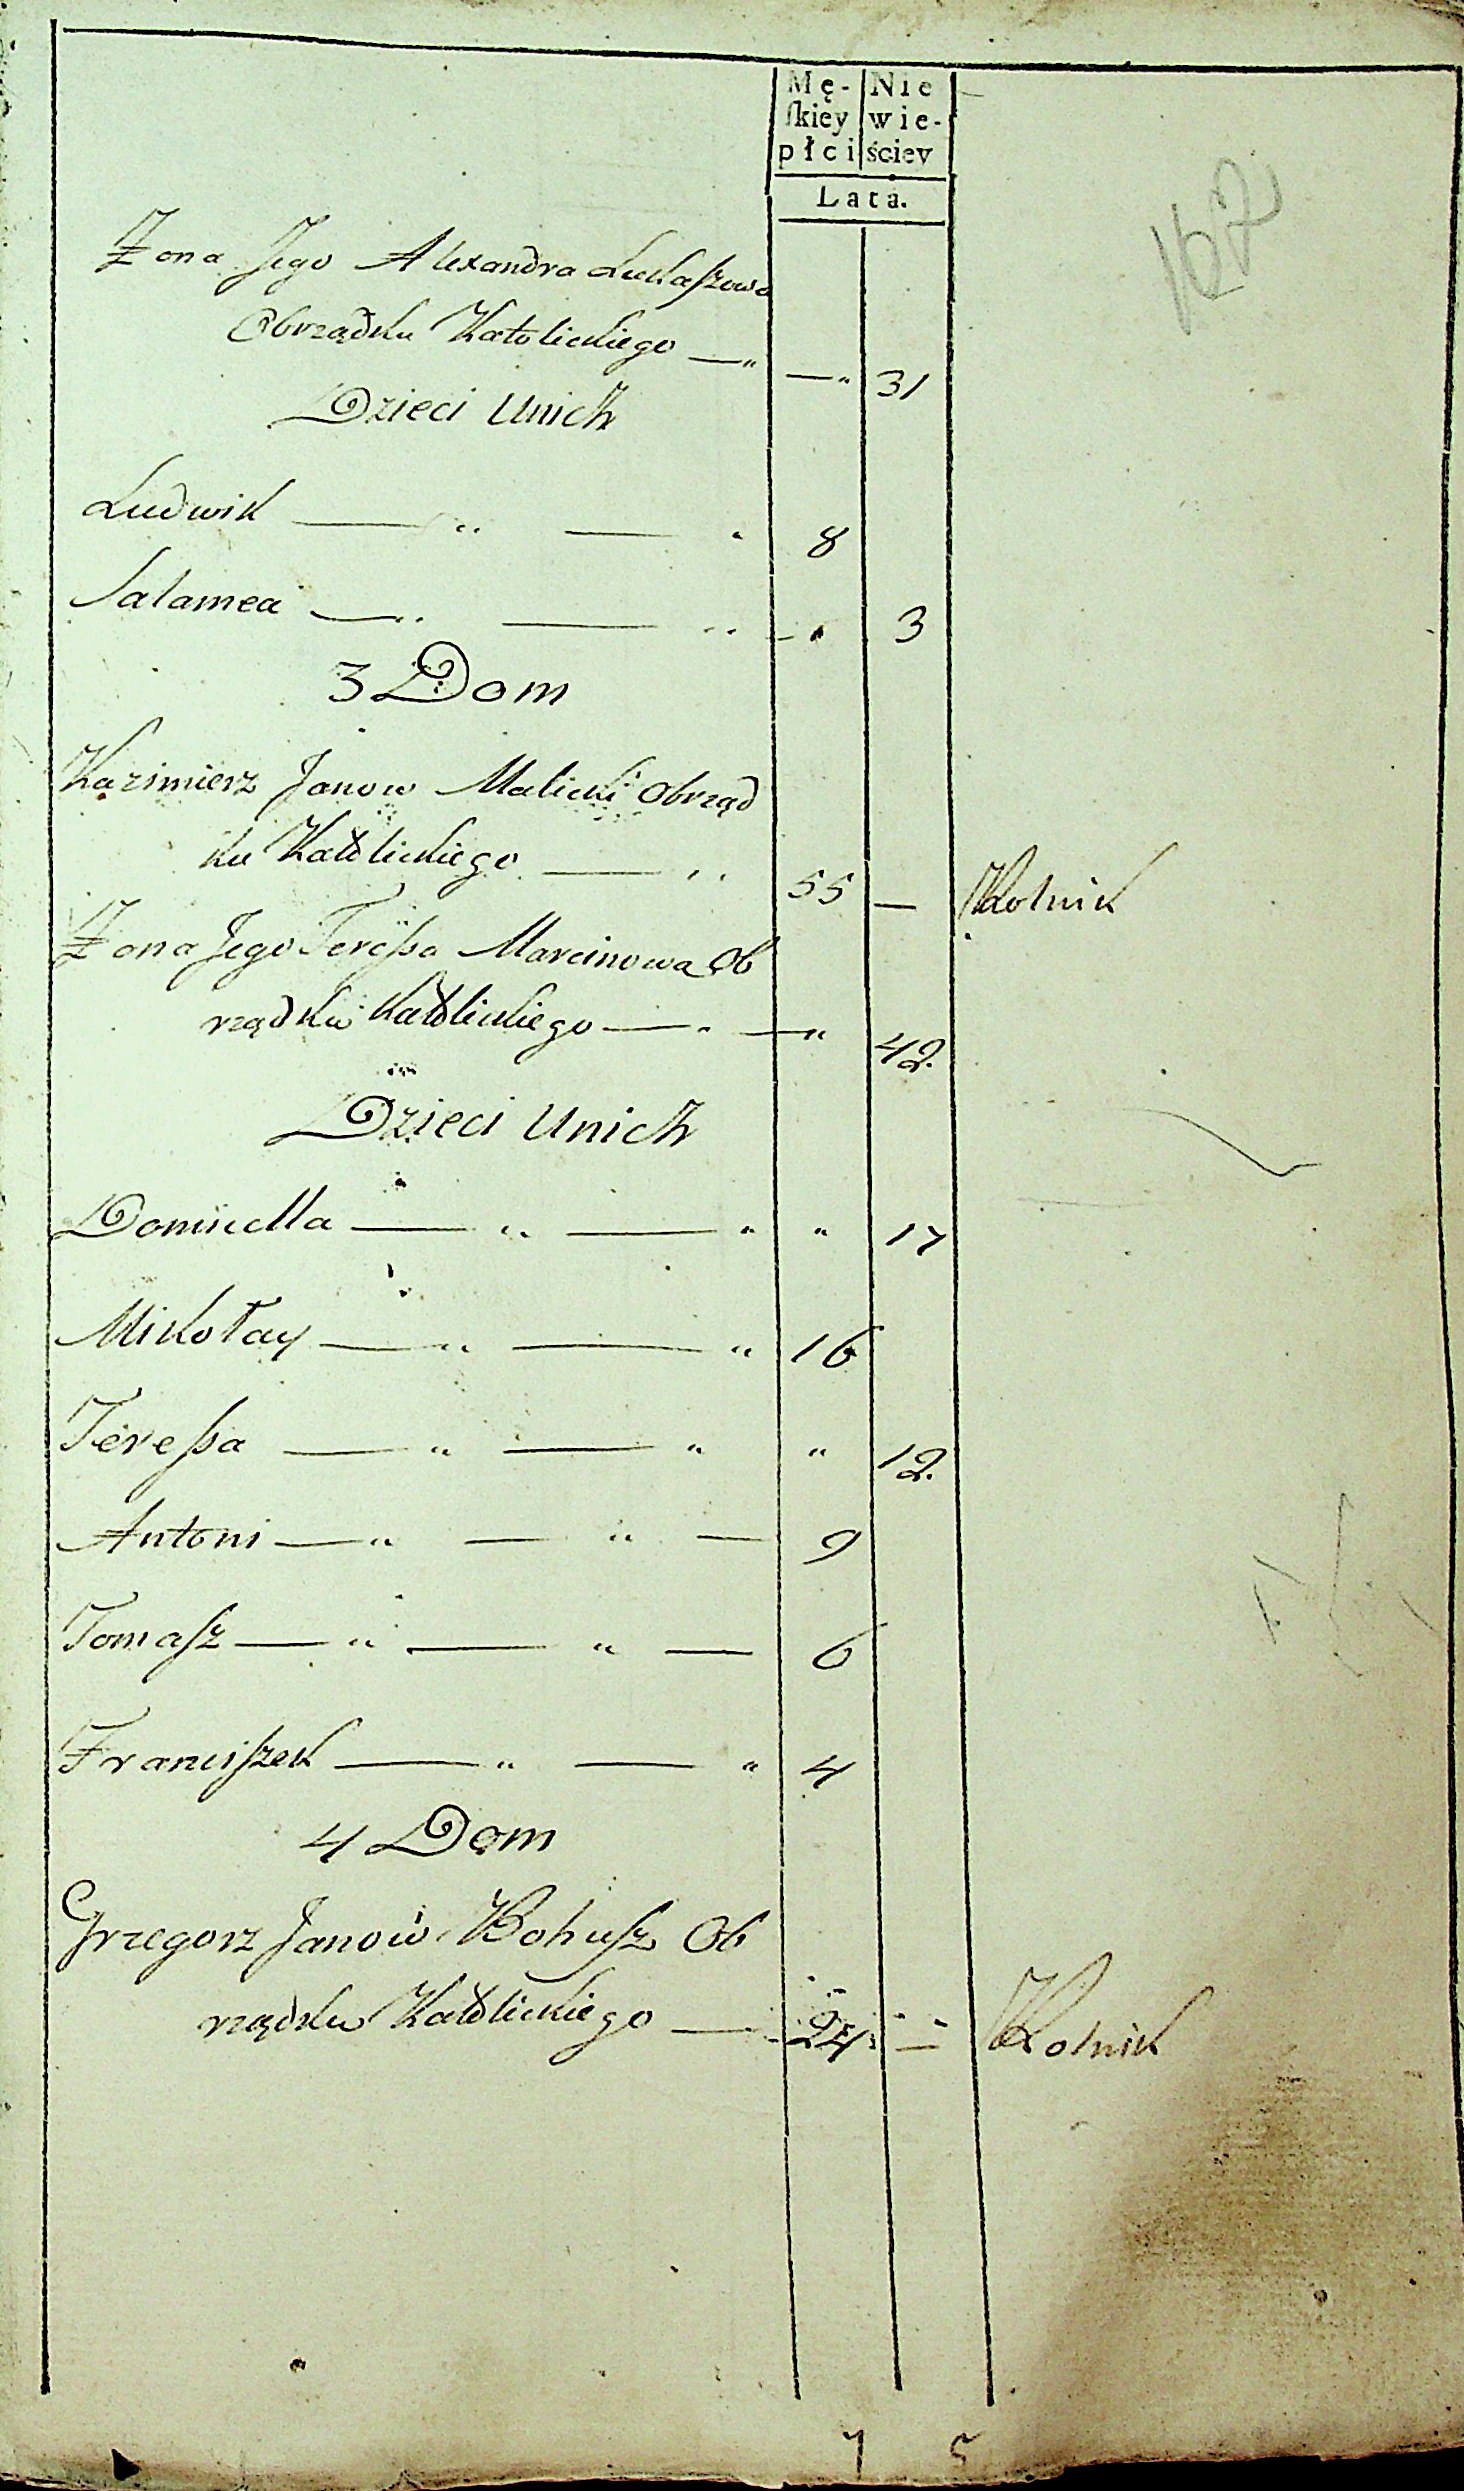 Mę- Nie
ſkiey wie-
płci ściey
Lata.
162
Żona Jego Alexandra Łukaſzowa
Obrządku Katolickiego —„ —„ 31
Dzieci Unich
Ludwik — „ — „ 8
Salamea — „ — „ — „ 3
3 Dom
Kazimierz Janow Malicki Obrząd
ku Katolickiego — „ 55 — Rolnik
Żona Jego Tereſsa Marcinowa Ob
rządku Katolickiego — „ — „ 42.
Dzieci Unich
Domicella — „ — „ „ 17
Mikołay — „ — „ 16
Tereſsa — „ — „ „ 12.
Antoni — „ — „ — 9
Tomaſz — „ — „ — 6
Franciſzek — „ — „ 4
4 Dom
Grzegorz Janow Bohuſz Ob
rządku Katolickiego — 24 — Rolnik
7 5